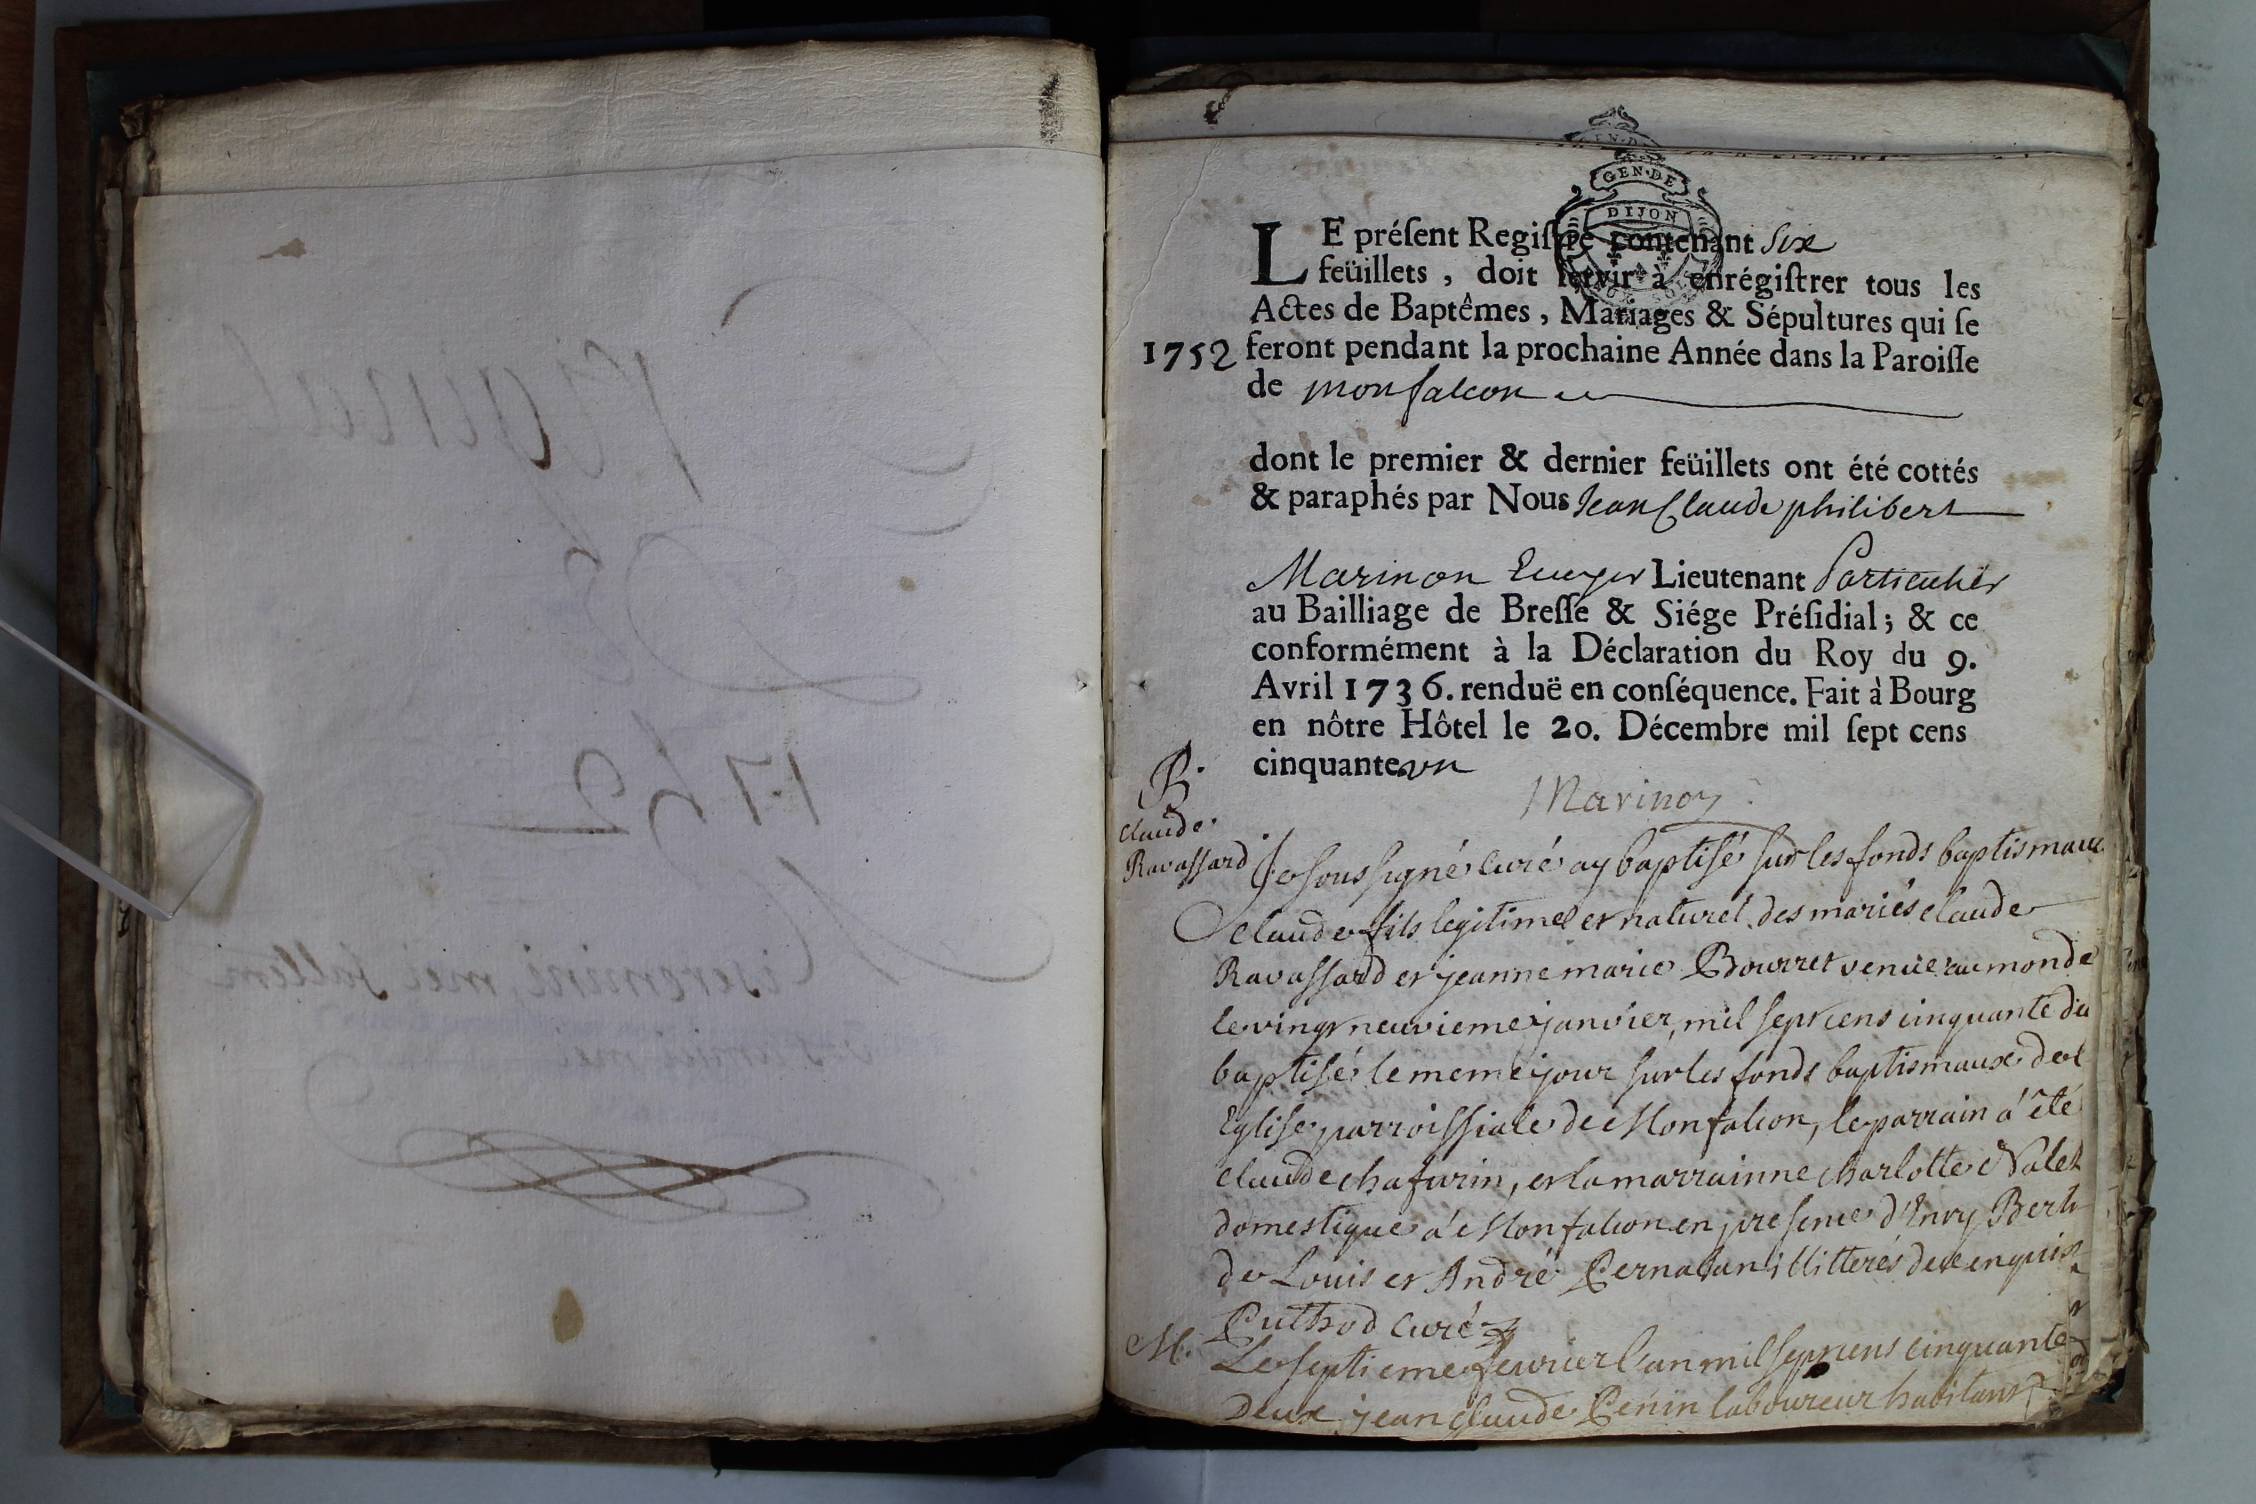 GEN·DE
DIJON
LE préſent Regiſtre contenant six
feüillets, doit ſervir à enrégiſtrer tous les
Actes de Baptêmes, Mariages & Sépultures qui ſe
1752 feront pendant la prochaine Année dans la Paroiſſe
de monfalcon
dont le premier & dernier feüillets ont été cottés
& paraphés par Nous Jean Claude philibert
Marinon Ecuyer Lieutenant Particulier
au Bailliage de Breſſe & Siége Préſidial; & ce
conformément à la Déclaration du Roy du 9.
Avril 1736. renduë en conſéquence. Fait à Bourg
en nôtre Hôtel le 20. Décembre mil ſept cens
cinquante un
Marinon
B.
claude
Ravassard
Je soussigné curé ay baptisé sur les fonds baptismaux
claude fils legitime et naturel des mariés claude
Ravassard et jeanne marie Bourret venüe au monde
le vingt neuvieme janvier, mil sept cens cinquante du
baptisé le meme jour sur les fonds baptismaux de l
Eglise parroissiale de Monfalcon, le parrain a été
claude chafurin, et la marrainne charlotte Nalet
domestique a Monfalcon en presence d'Enry Berth
de Louis et André Pernodan illitterés de ce enquis
Puthod curé
M. Le septieme fevrier l'an mil sept cens cinquante
Deux jean claude Penin laboureur habitant